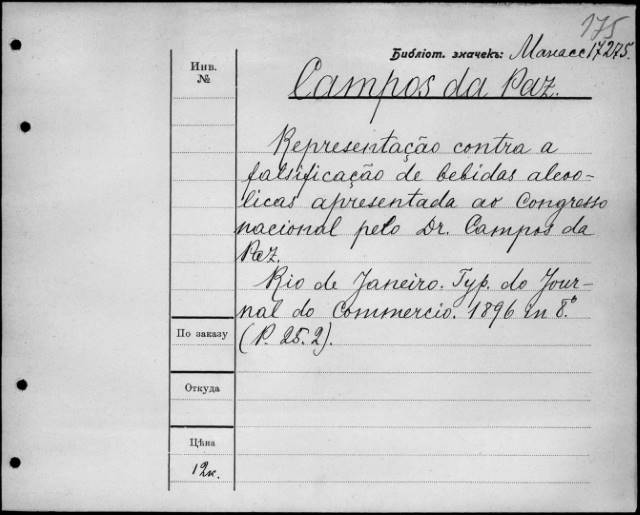 175
Библіот. значекъ: Манасс 17275.
Инв.
№
Campos da Paz.
Representação contra a
falsificação de bebidas alcoo-
licas apresentada ao Congresso
nacional pelo Dr. Campos da
Paz.
Rio de Janeiro. Typ. do Jour-
nal do Commercio. 1896 in 8.°
(P. 25.2).
По заказу
Откуда
Цѣна
12к.